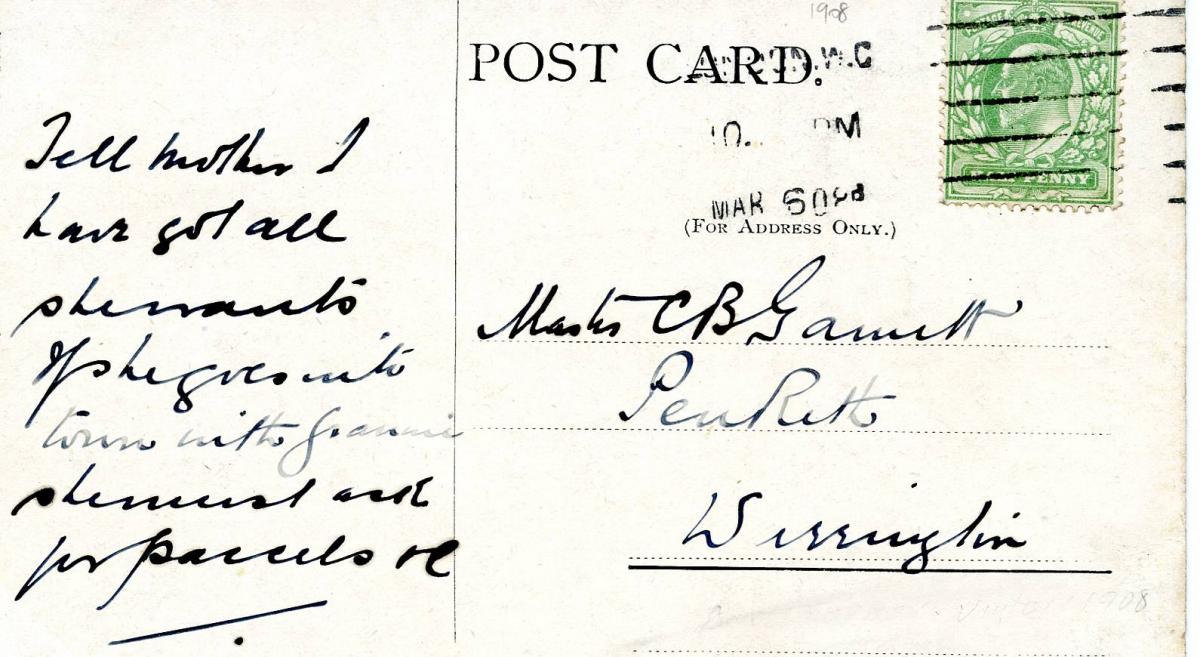 1908
POST CARD.
N.W.C
10. PM
MAR 6 08
(FOR ADDRESS ONLY.)
POSTAGE REVENUE
HALF PENNY
Tell Mother I
have got all
she wants
If she goes into
town with Grannie
she must ask
for parcels
Master C B Garnett
Penketh
Warrington
1908